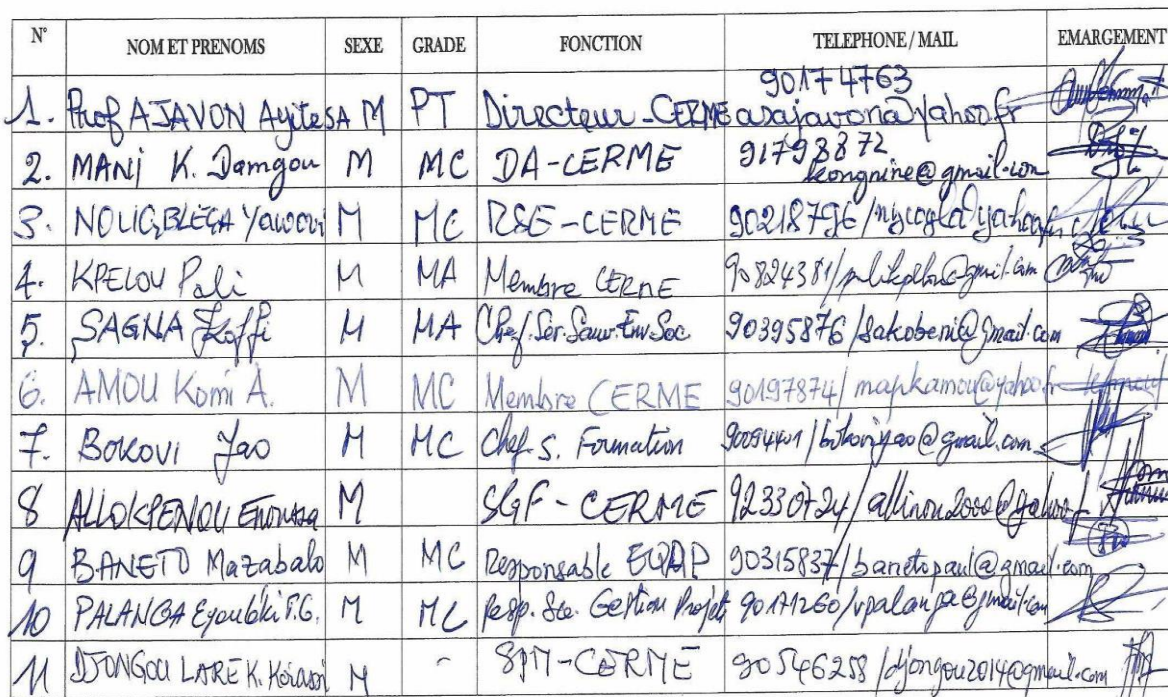 N° NOM ET PRENOMS SEXE GRADE FONCTION TELEPHONE / MAIL EMARGEMENT
1. Prof AJAVON Ayité SA M PT Directeur-CERME 90174763 asajavon@yahoo.fr
2. MANI K. Damgou M MC DA-CERME 91793872 kongnine@gmail.com
3. NOUGBLEGA Yawovi M MC RSE-CERME 90218796 /
4. KPELOU Pali M MA Membre CERME 90824381/
5. SAGNA Koffi M MA Chef. Ser. Sauv. Env. Soc 90395876 /sakobeni@gmail.com
6. AMOU Komi A. M MC Membre CERME 90197874/ mapkamou@yahoo.fr
7. BOKOVI Yao M MC Chef. S. Formation / bokoviyao@gmail.com
8 M SGF-CERME 92330724/ allinou2000@yahoo.f
9 BANETO Mazabalo M MC Responsable 90315837/banetopaul@gmail.com
10 PALANGA M MC Resp. Ste. Gestion Projets 90171260/vpalanga@gmail.com
11 DJONGOU LARE K. M - SPM-CERME 90546258 /djongou2014@gmail.com